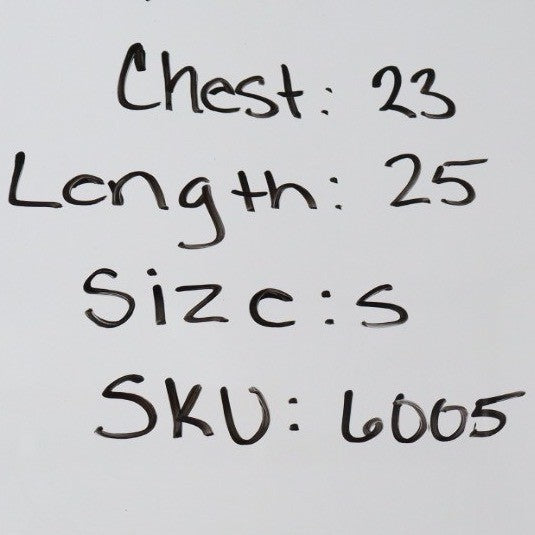 Chest: 23
Length: 25
Size: S
SKU: 6005